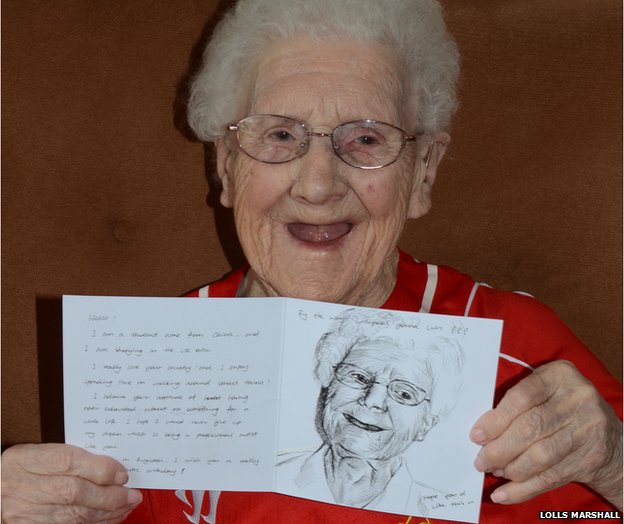 Hello!
I am a student come from China, and
I am studying in the UK now.
I really love your country and I enjoy
spending time on walking around small towns!
I admire your
never exhausted interest on something for a
whole life. I hope I would never give up
my dream which is being a professional artist
like
I wish you a really
birthday!
By the way, Liverpool gonna win
Hope you'd
like this
LOLLS MARSHALL